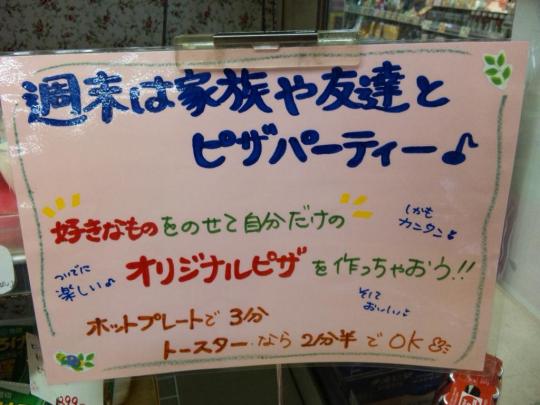 週末は家族や友達と
ピザパーティー♪
好きなものをのせて自分だけの
しかも
カンタン♪
ついでに
楽しい♪
オリジナルピザを作っちゃおう!!
そして
おいしい♪
ホットプレートで3分
トースターなら2分半でOK